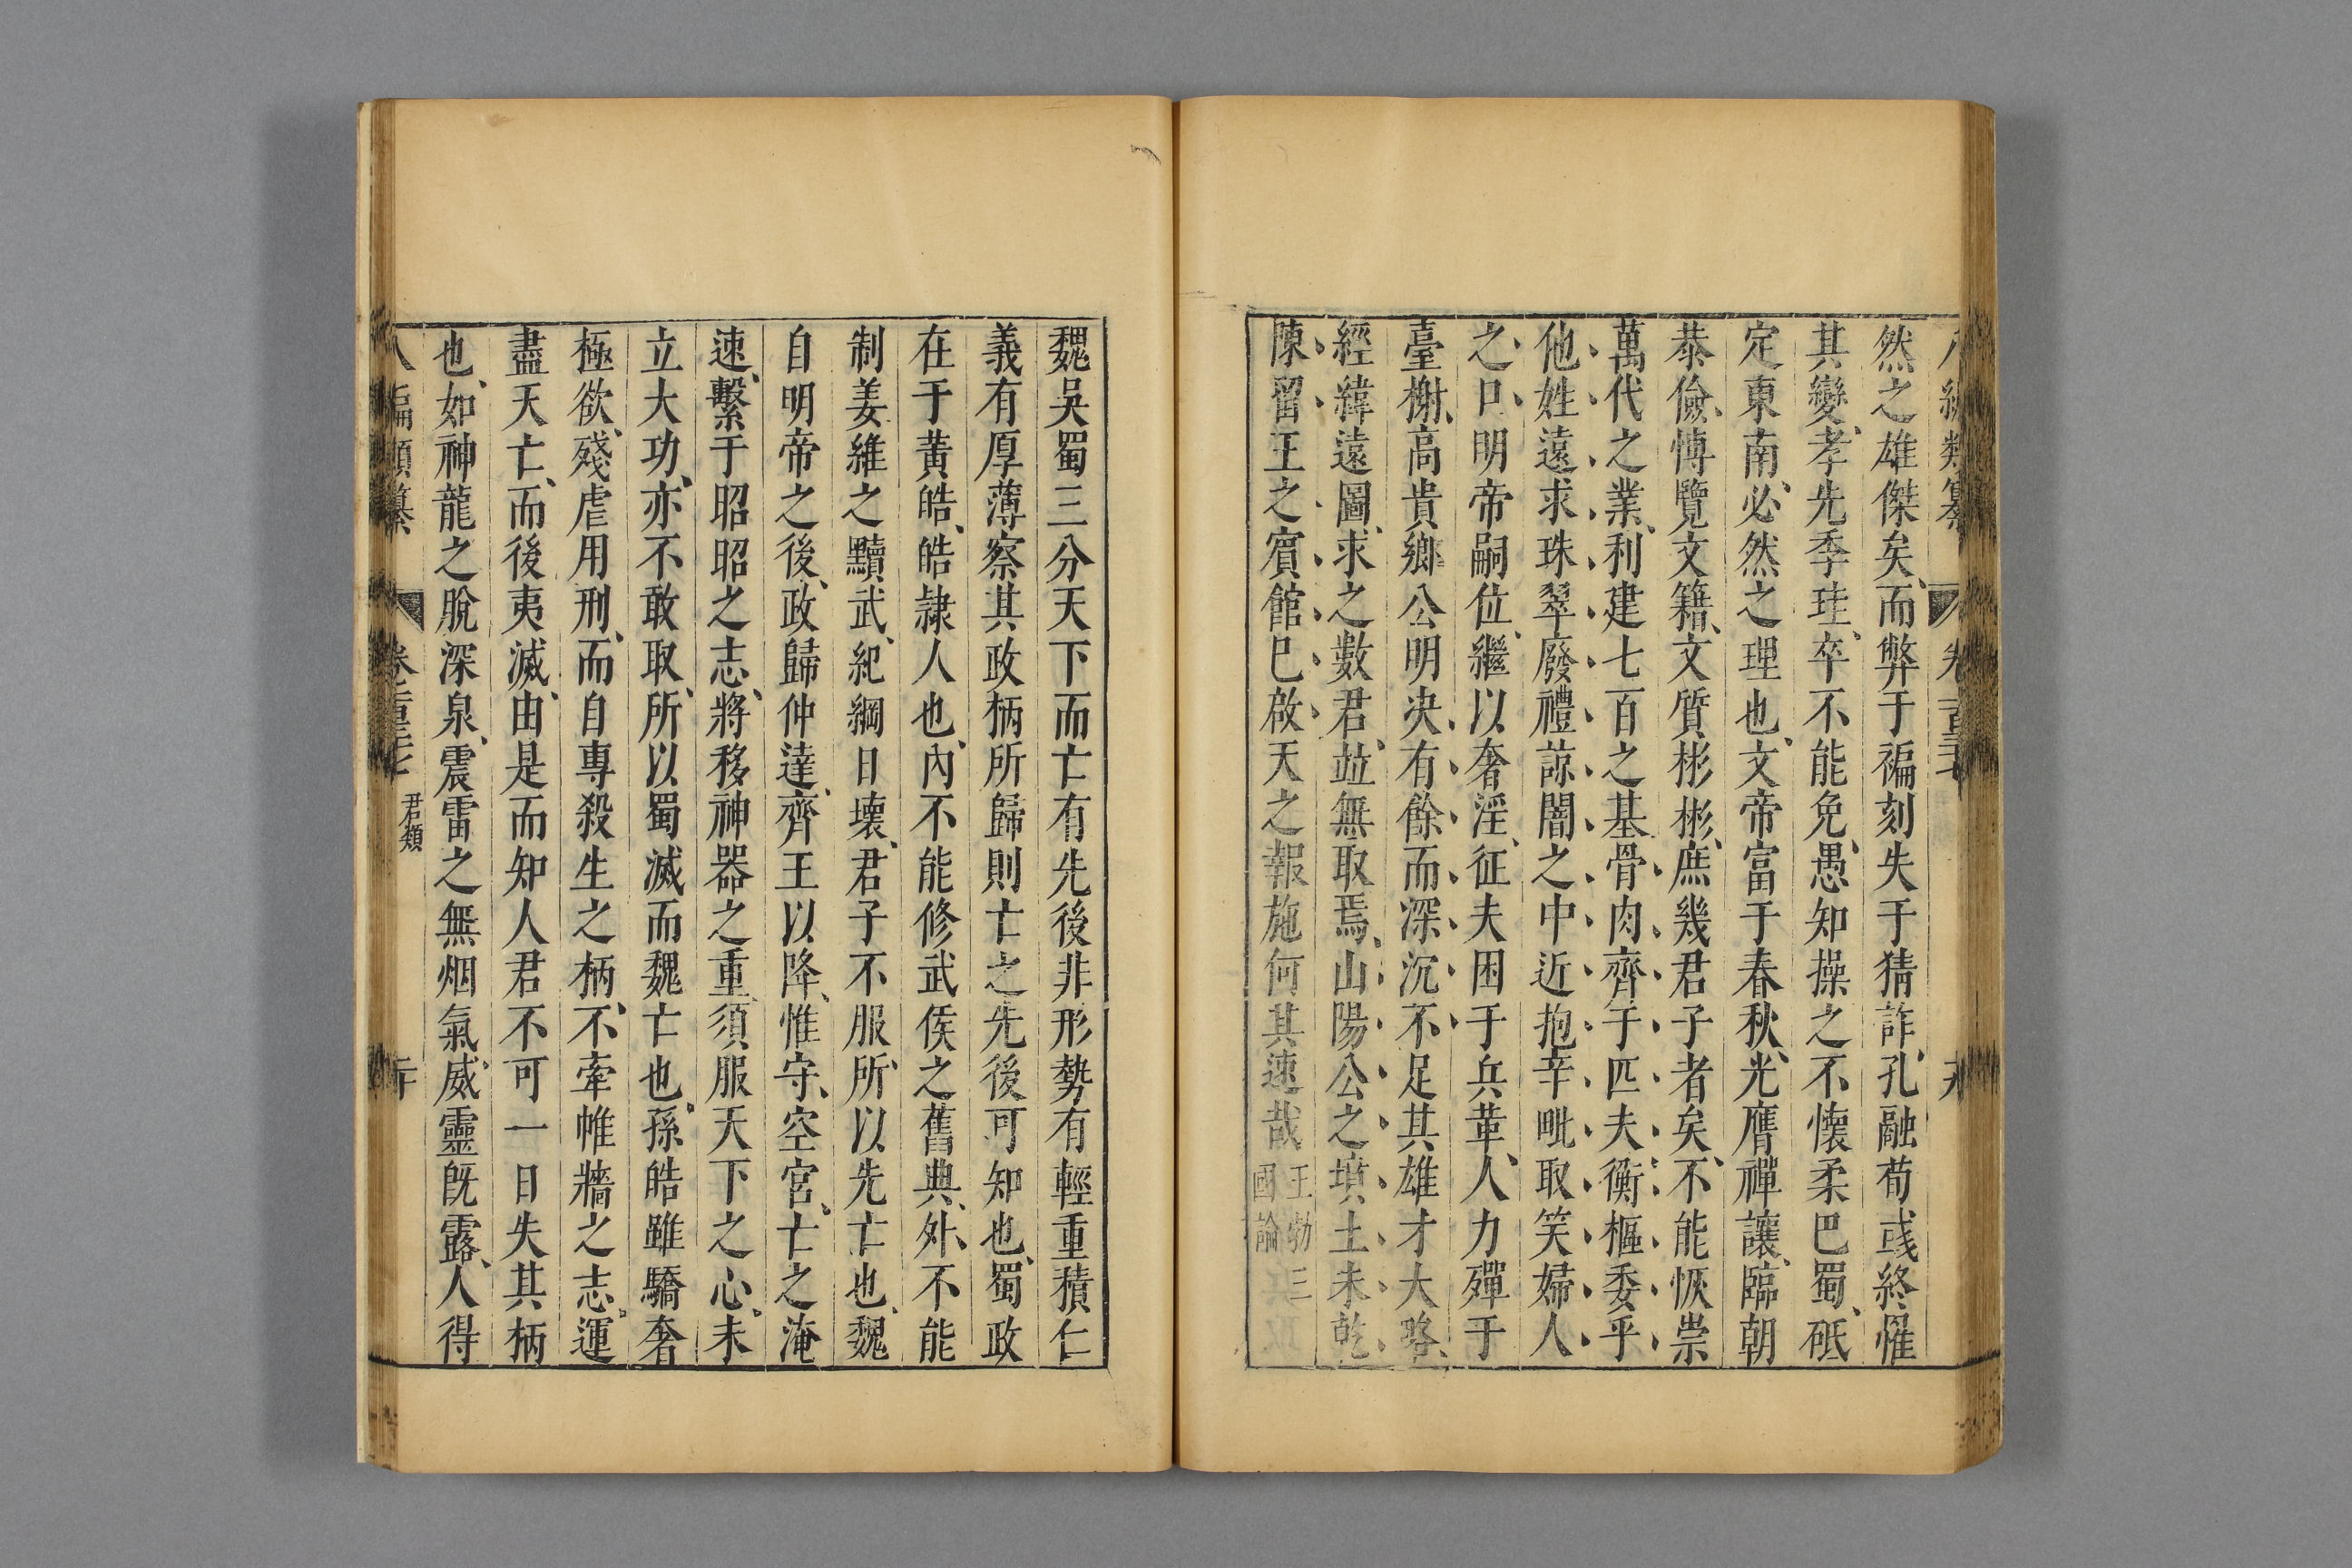 然之雄傑矣、而弊于褊刻失于猜詐、孔融荀彧終罹
其變、孝先季珪、卒不能免、愚知操之不懷柔巴蜀、砥
定東南、必然之理也、文帝富于春秋、光膺禪讓、臨朝
恭儉、博覽文籍、文質彬彬、庶幾君子者矣、不能恢崇
萬代之業、利建七百之基骨肉齊于匹夫衡樞委乎
他姓遠求珠翠廢禮諒闇之中近抱辛毗取笑婦人
之口明帝嗣位、繼以奢淫、征夫困于兵革、人力殫于
臺榭、高貴鄉公明決有餘而深沉不足其雄才大略、
經緯遠圖、求之數君、並無取焉、山陽公之墳土未乾
陳留王之賓館已啟天之報施何其速哉
王勃三
國論
魏吳蜀三分天下而亡有先後非形勢有輕重積仁
義有厚薄察其政柄所歸則亡之先後可知也、蜀政
在于黃皓、皓隷人也、內不能修武侯之舊典、外不能
制姜維之黷武、紀綱日壞、君子不服、所以先亡也、魏
自明帝之後、政歸仲達、齊王以降、惟守空宮、亡之淹
速、繫于昭昭之志、將移神器之重、須服天下之心、未
立大功、亦不敢取、所以蜀滅而魏亡也、孫皓雖驕奢
極欲、殘虐用刑、而自專殺生之柄、不牽帷牆之志、運
盡天亡、而後夷滅、由是而知人君不可一日失其柄
也、如神龍之脫深泉、震雷之無烟氣、威靈旣露、人得
君類